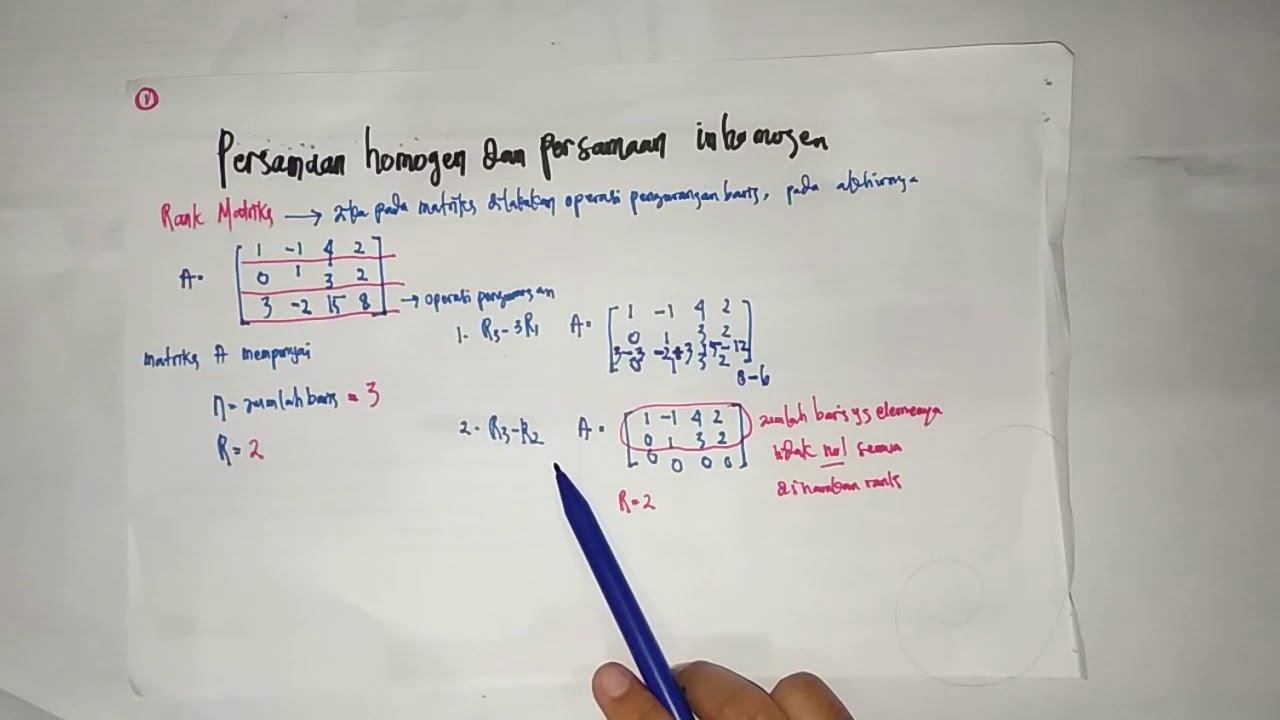 1
Persamaan homogen dan persamaan inhomogen
Rank Matriks → Jika pada matriks dilakukan operasi pengurangan baris, pada akhirnya
A = [ 1 -1 4 2
0 1 3 2
3 -2 15 8 ] → operasi pengurangan
1. R3 - 3R1 A = [ 1 -1 4 2
0 1 3 2
3-3 -2+3 15-12
0 1 3 2 ]
8-6
matriks A mempunyai
n = jumlah baris = 3
R = 2
2. R3 - R2 A = [ 1 -1 4 2
0 1 3 2
0 0 0 0 ]
jumlah baris yg elemennya
tidak nol semua
dinamakan rank
R = 2